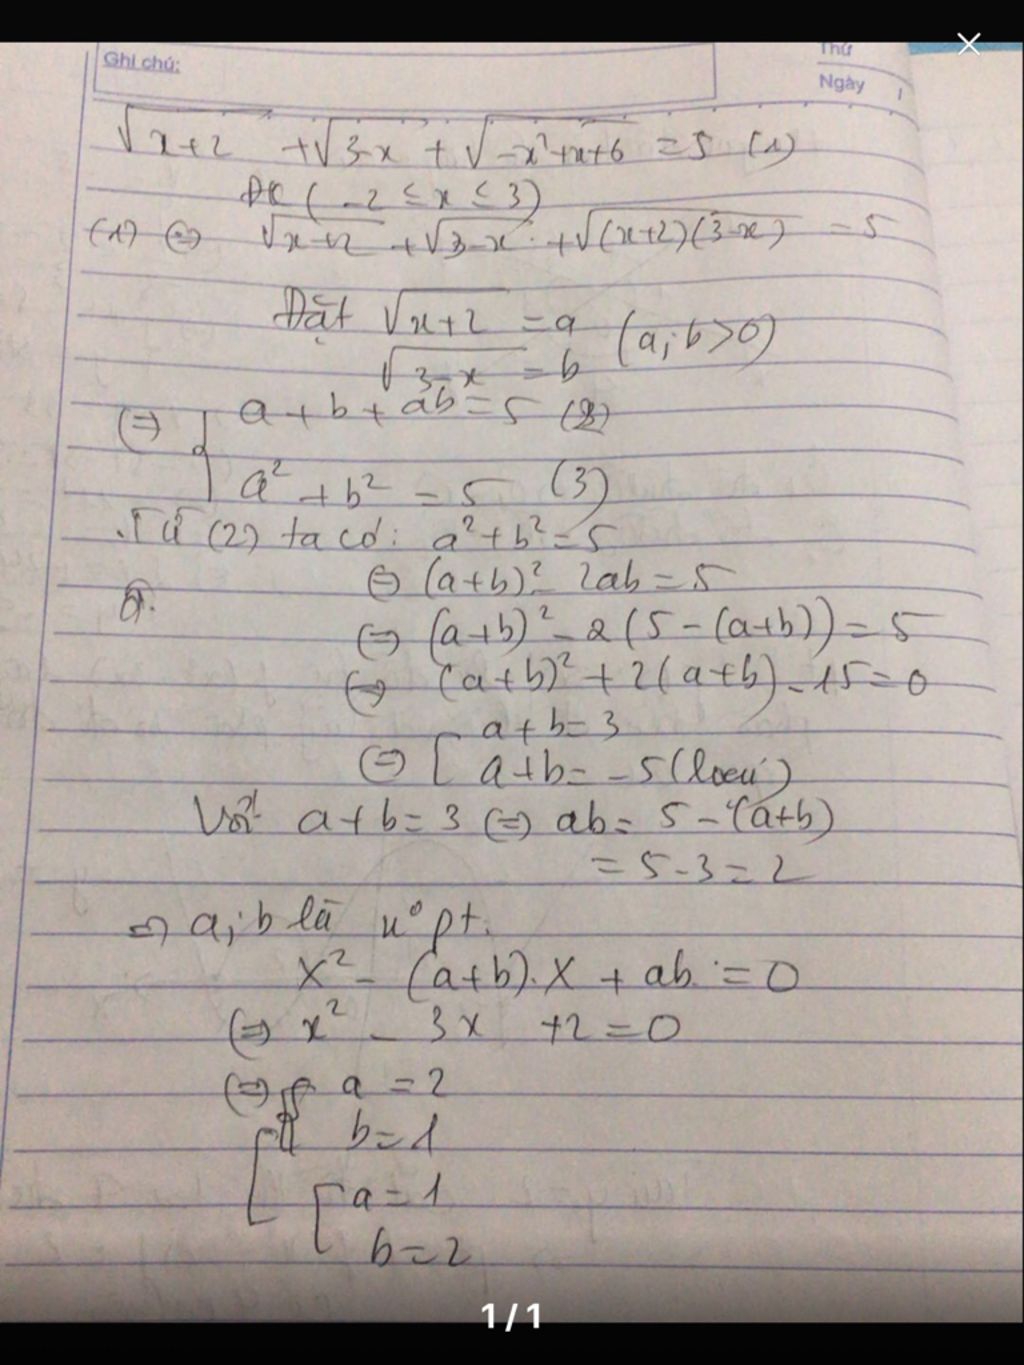 Ghi chú:
Thứ
Ngày /
√x+2 + √3-x + √-x²+x+6 = 5 (1)
ĐK ( -2 ≤ x ≤ 3)
(1) ⇔ √x+2 + √3-x + √(x+2)(3-x) = 5
Đặt √x+2 = a (a;b>0)
√3-x = b
⇒ { a + b + ab = 5 (2)
a² + b² = 5 (3)
Từ (2) ta có: a²+b²=5
⇔ (a+b)² - 2ab = 5
⇔ (a+b)² - 2(5-(a+b)) = 5
⇔ (a+b)² + 2(a+b) - 15 = 0
⇔ [ a+b=3
a+b= -5 (loại)
Với a+b=3 ⇔ ab= 5-(a+b)
= 5-3=2
⇒ a;b là n° pt.
X² - (a+b).X + ab = 0
⇔ x² - 3x +2=0
⇔ [ { a = 2
b = 1
[ a = 1
b = 2
1/1